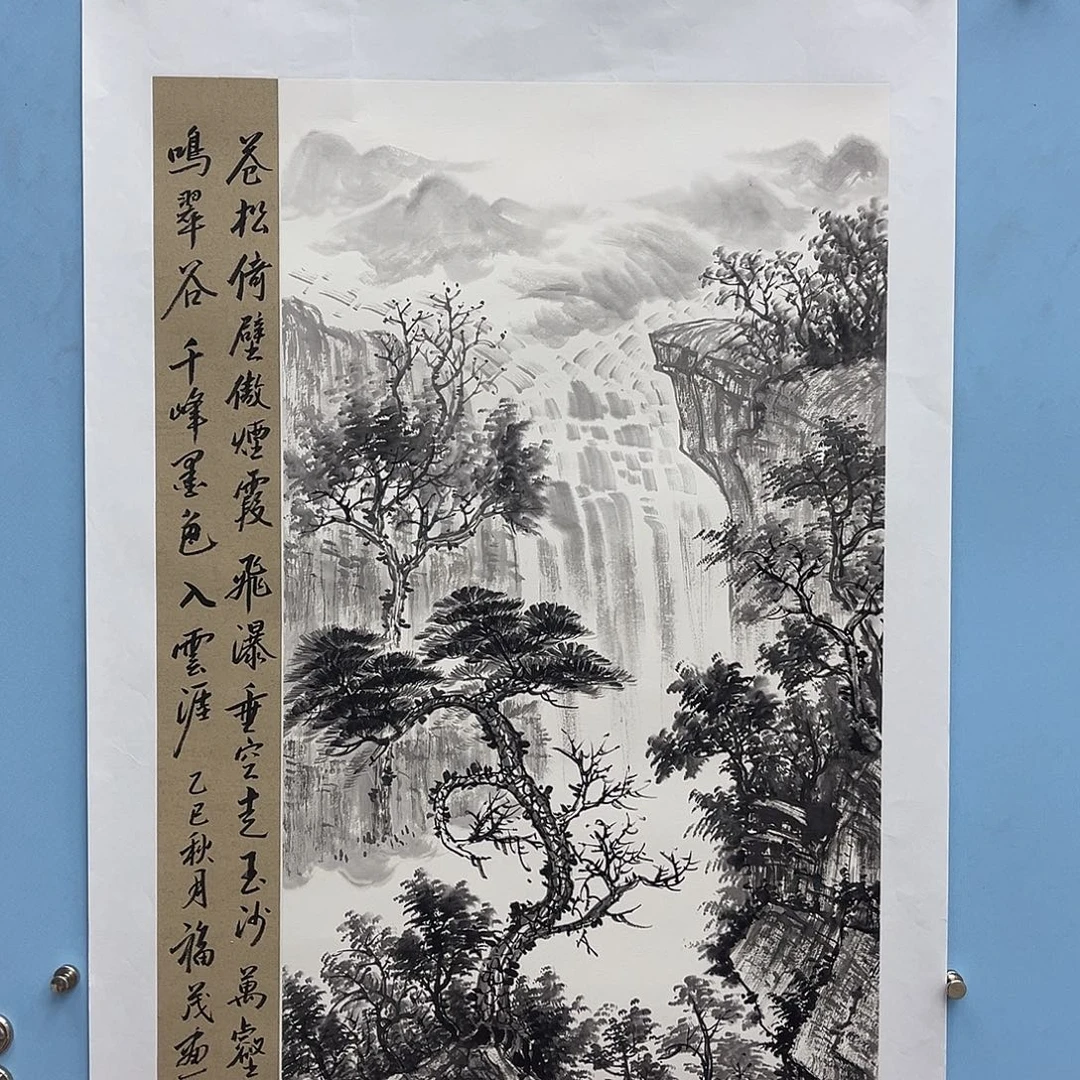 苍松倚壁傲煙霞飛瀑垂空走玉沙萬壑
鳴翠谷千峰墨色入雲涯乙巳秋月福茂画